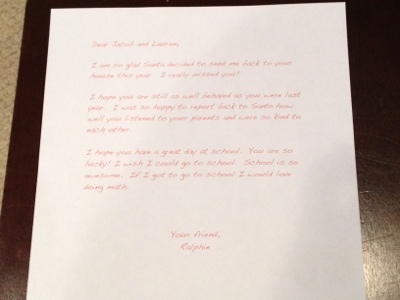 Dear Jacob and Lauren,
I am so glad Santa decided to send me back to your
house this year. I really missed you!
I hope you are still as well behaved as you were last
year. I was so happy to report back to Santa how
well you listened to your parents and were so kind to
each other.
I hope you have a great day at school. You are so
lucky! I wish I could go to school. School is so
awesome. If I got to go to school I would love
doing math.
Your friend,
Ralphie